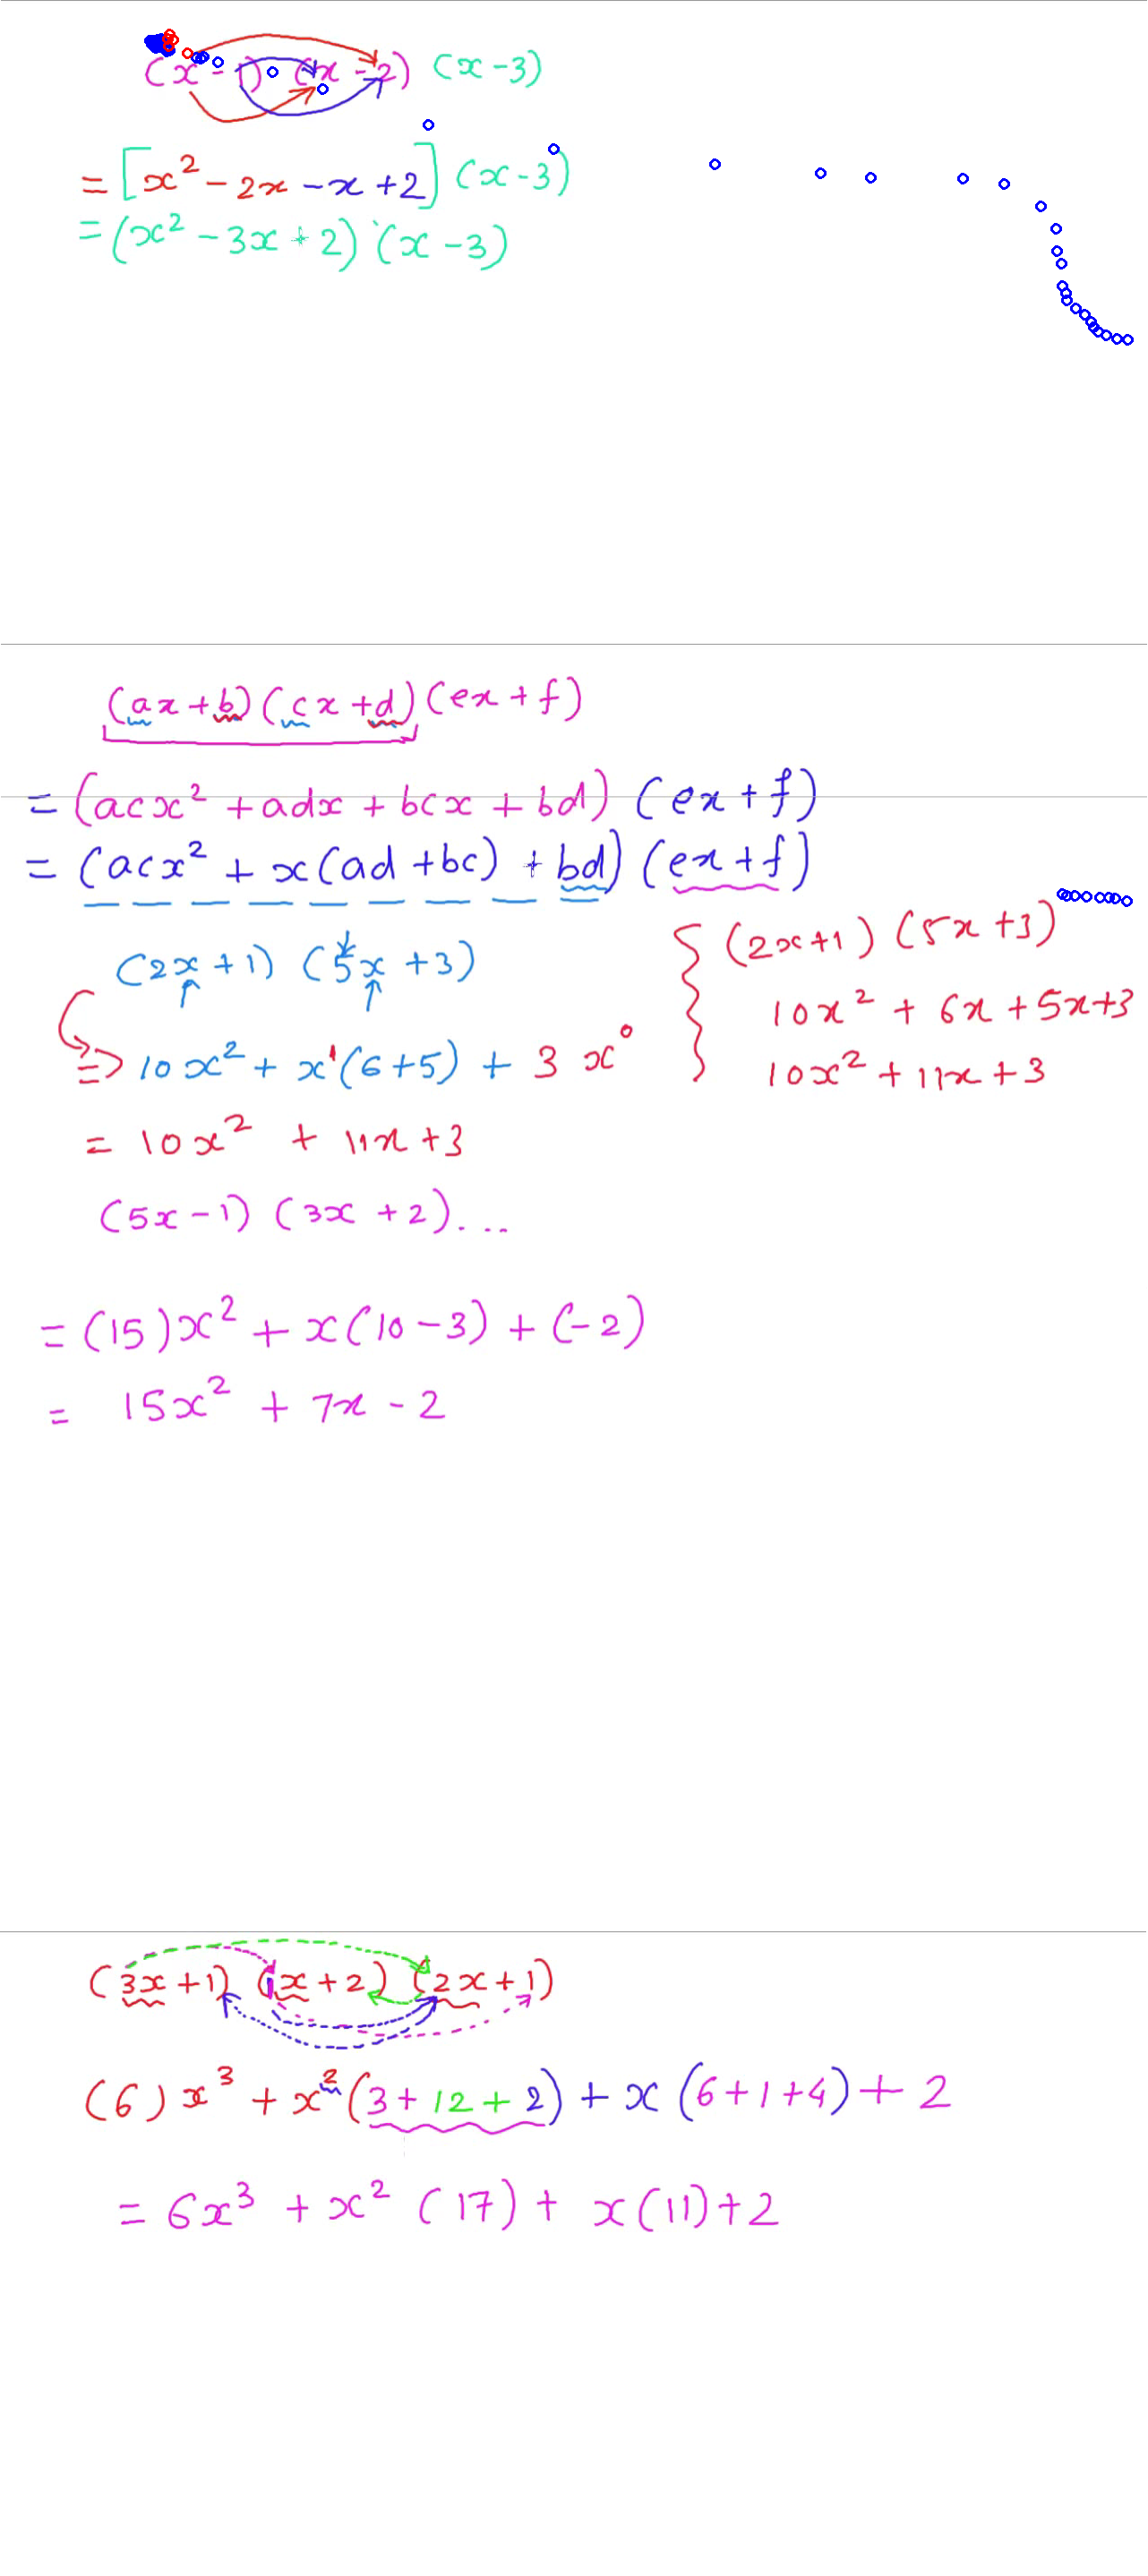 (x - 1) (x - 2) (x - 3)
= [x² - 2x - x + 2] (x - 3)
= (x² - 3x + 2) (x - 3)
(ax + b) (cx + d) (ex + f)
= (acx² + adx + bcx + bd) (ex + f)
= (acx² + x(ad + bc) + bd) (ex + f)
(2x + 1) (5x + 3)
=> 10x² + x¹(6 + 5) + 3 x⁰
= 10x² + 11x + 3
{ (2x + 1) (5x + 3)
10x² + 6x + 5x + 3
10x² + 11x + 3
(5x - 1) (3x + 2) ...
= (15)x² + x(10 - 3) + (-2)
= 15x² + 7x - 2
(3x + 1) (x + 2) (2x + 1)
(6) x³ + x² (3 + 12 + 2) + x (6 + 1 + 4) + 2
= 6x³ + x² (17) + x(11) + 2